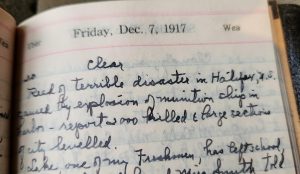 Ther
Friday, Dec. 7, 1917
Wea
Clear
Read of terrible disaster in Halifax, N.S.
caused by explosion of munition ship in
harbor - report 2000 killed & large sections
of city levelled.
Luke one of my Freshmen, has left school,
told